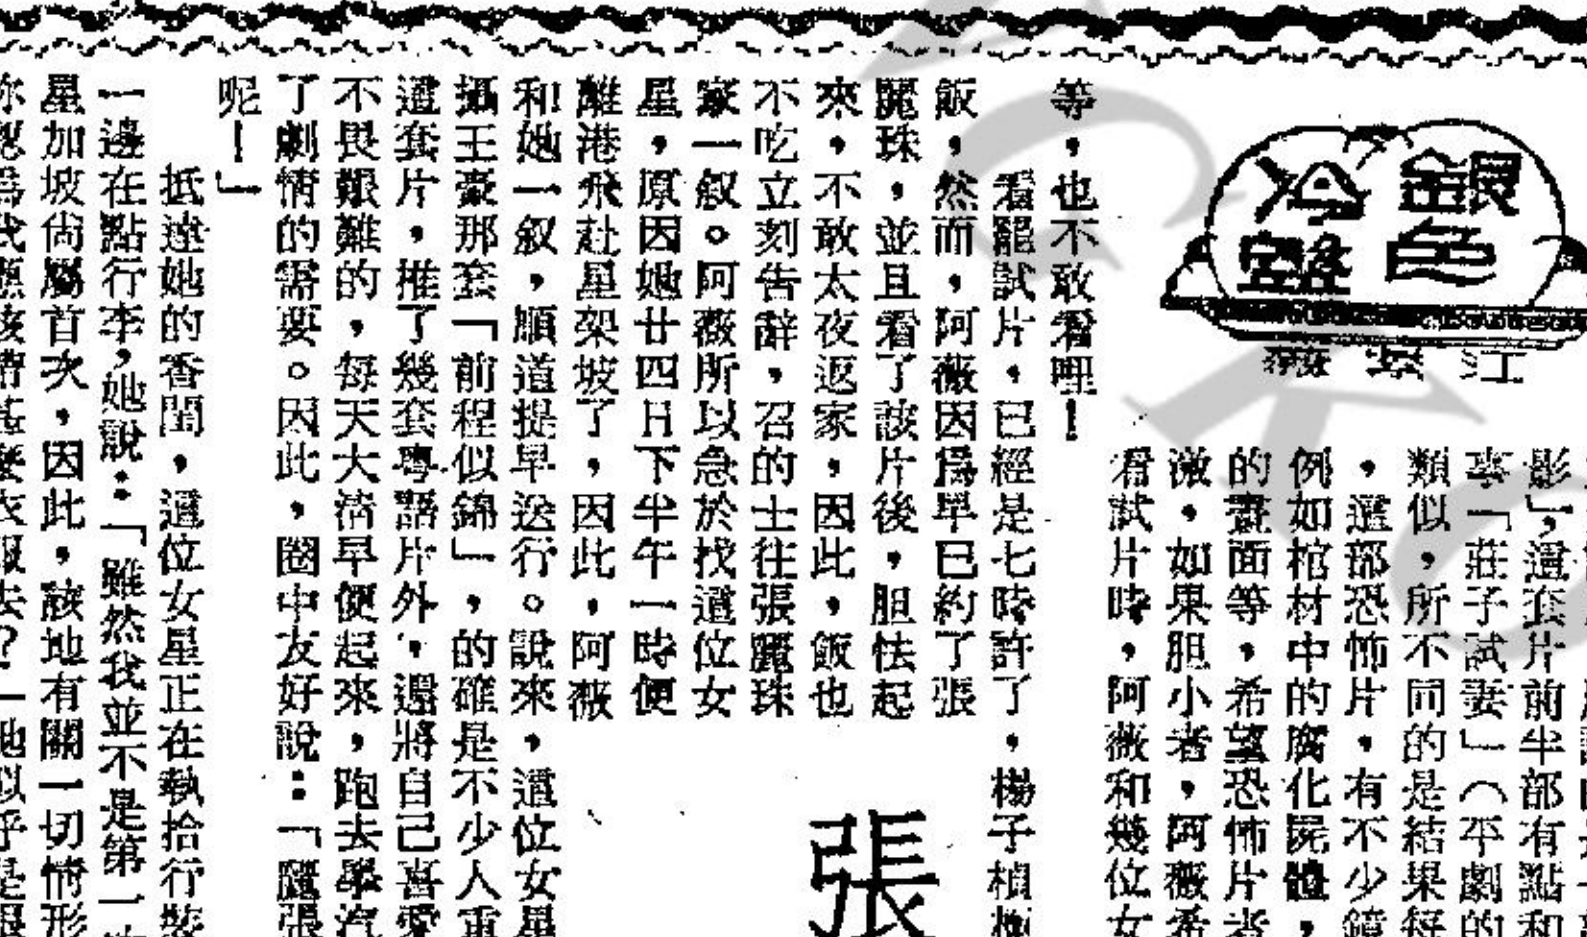 銀色
冷盤
江景薇
影」，這套片前半部有點和
事「莊子試妻」（平劇的
類似，所不同的是結果每
，這部恐怖片，有不少鏡
例如棺材中的腐化屍體，
的畫面等，希望恐怖片者
激，如果胆小者，阿薇希
看試片時，阿薇和幾位女
等，也不敢看哩！
看罷試片，已經是七時許了，楊子楨
飯，然而，阿薇因爲早已約了張
麗珠，並且看了該片後，胆怯起
來，不敢太夜返家，因此，飯也
不吃立刻告辭，召的士往張麗珠
家一叙。阿薇所以急於找這位女
星，原因她廿四日下半午一時便
離港飛赴星架坡了，因此，阿薇
和她一叙，順道提早送行。說來，這位女星
攝王豪那套「前程似錦」，的確是不少人重
這套片，推了幾套粵語片外，還將自己喜愛
不畏艱難的，每天大淸早便起來，跑去學汽
了劇情的需要。因此，圈中友好說：「麗張
呢！」
抵達她的香閨，這位女星正在執拾行裝
一邊在點行李，她說：「雖然我並不是第一
星加坡尙屬首次，因此，該地有關一切情形
衣服去？」她似乎是很
張